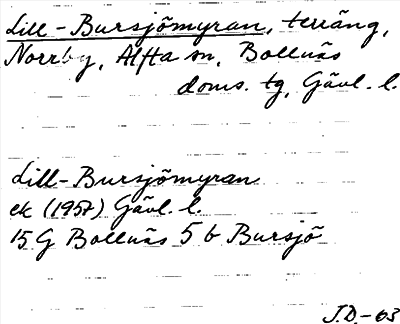 Lill-Bursjömyran, terräng,
Norrby, Alfta sn, Bollnäs
doms. tg, Gävl. l.
Lill-Bursjömyran
ek (1957) Gävl. l.
15 G Bollnäs 5 b Bursjö
J.D.-63